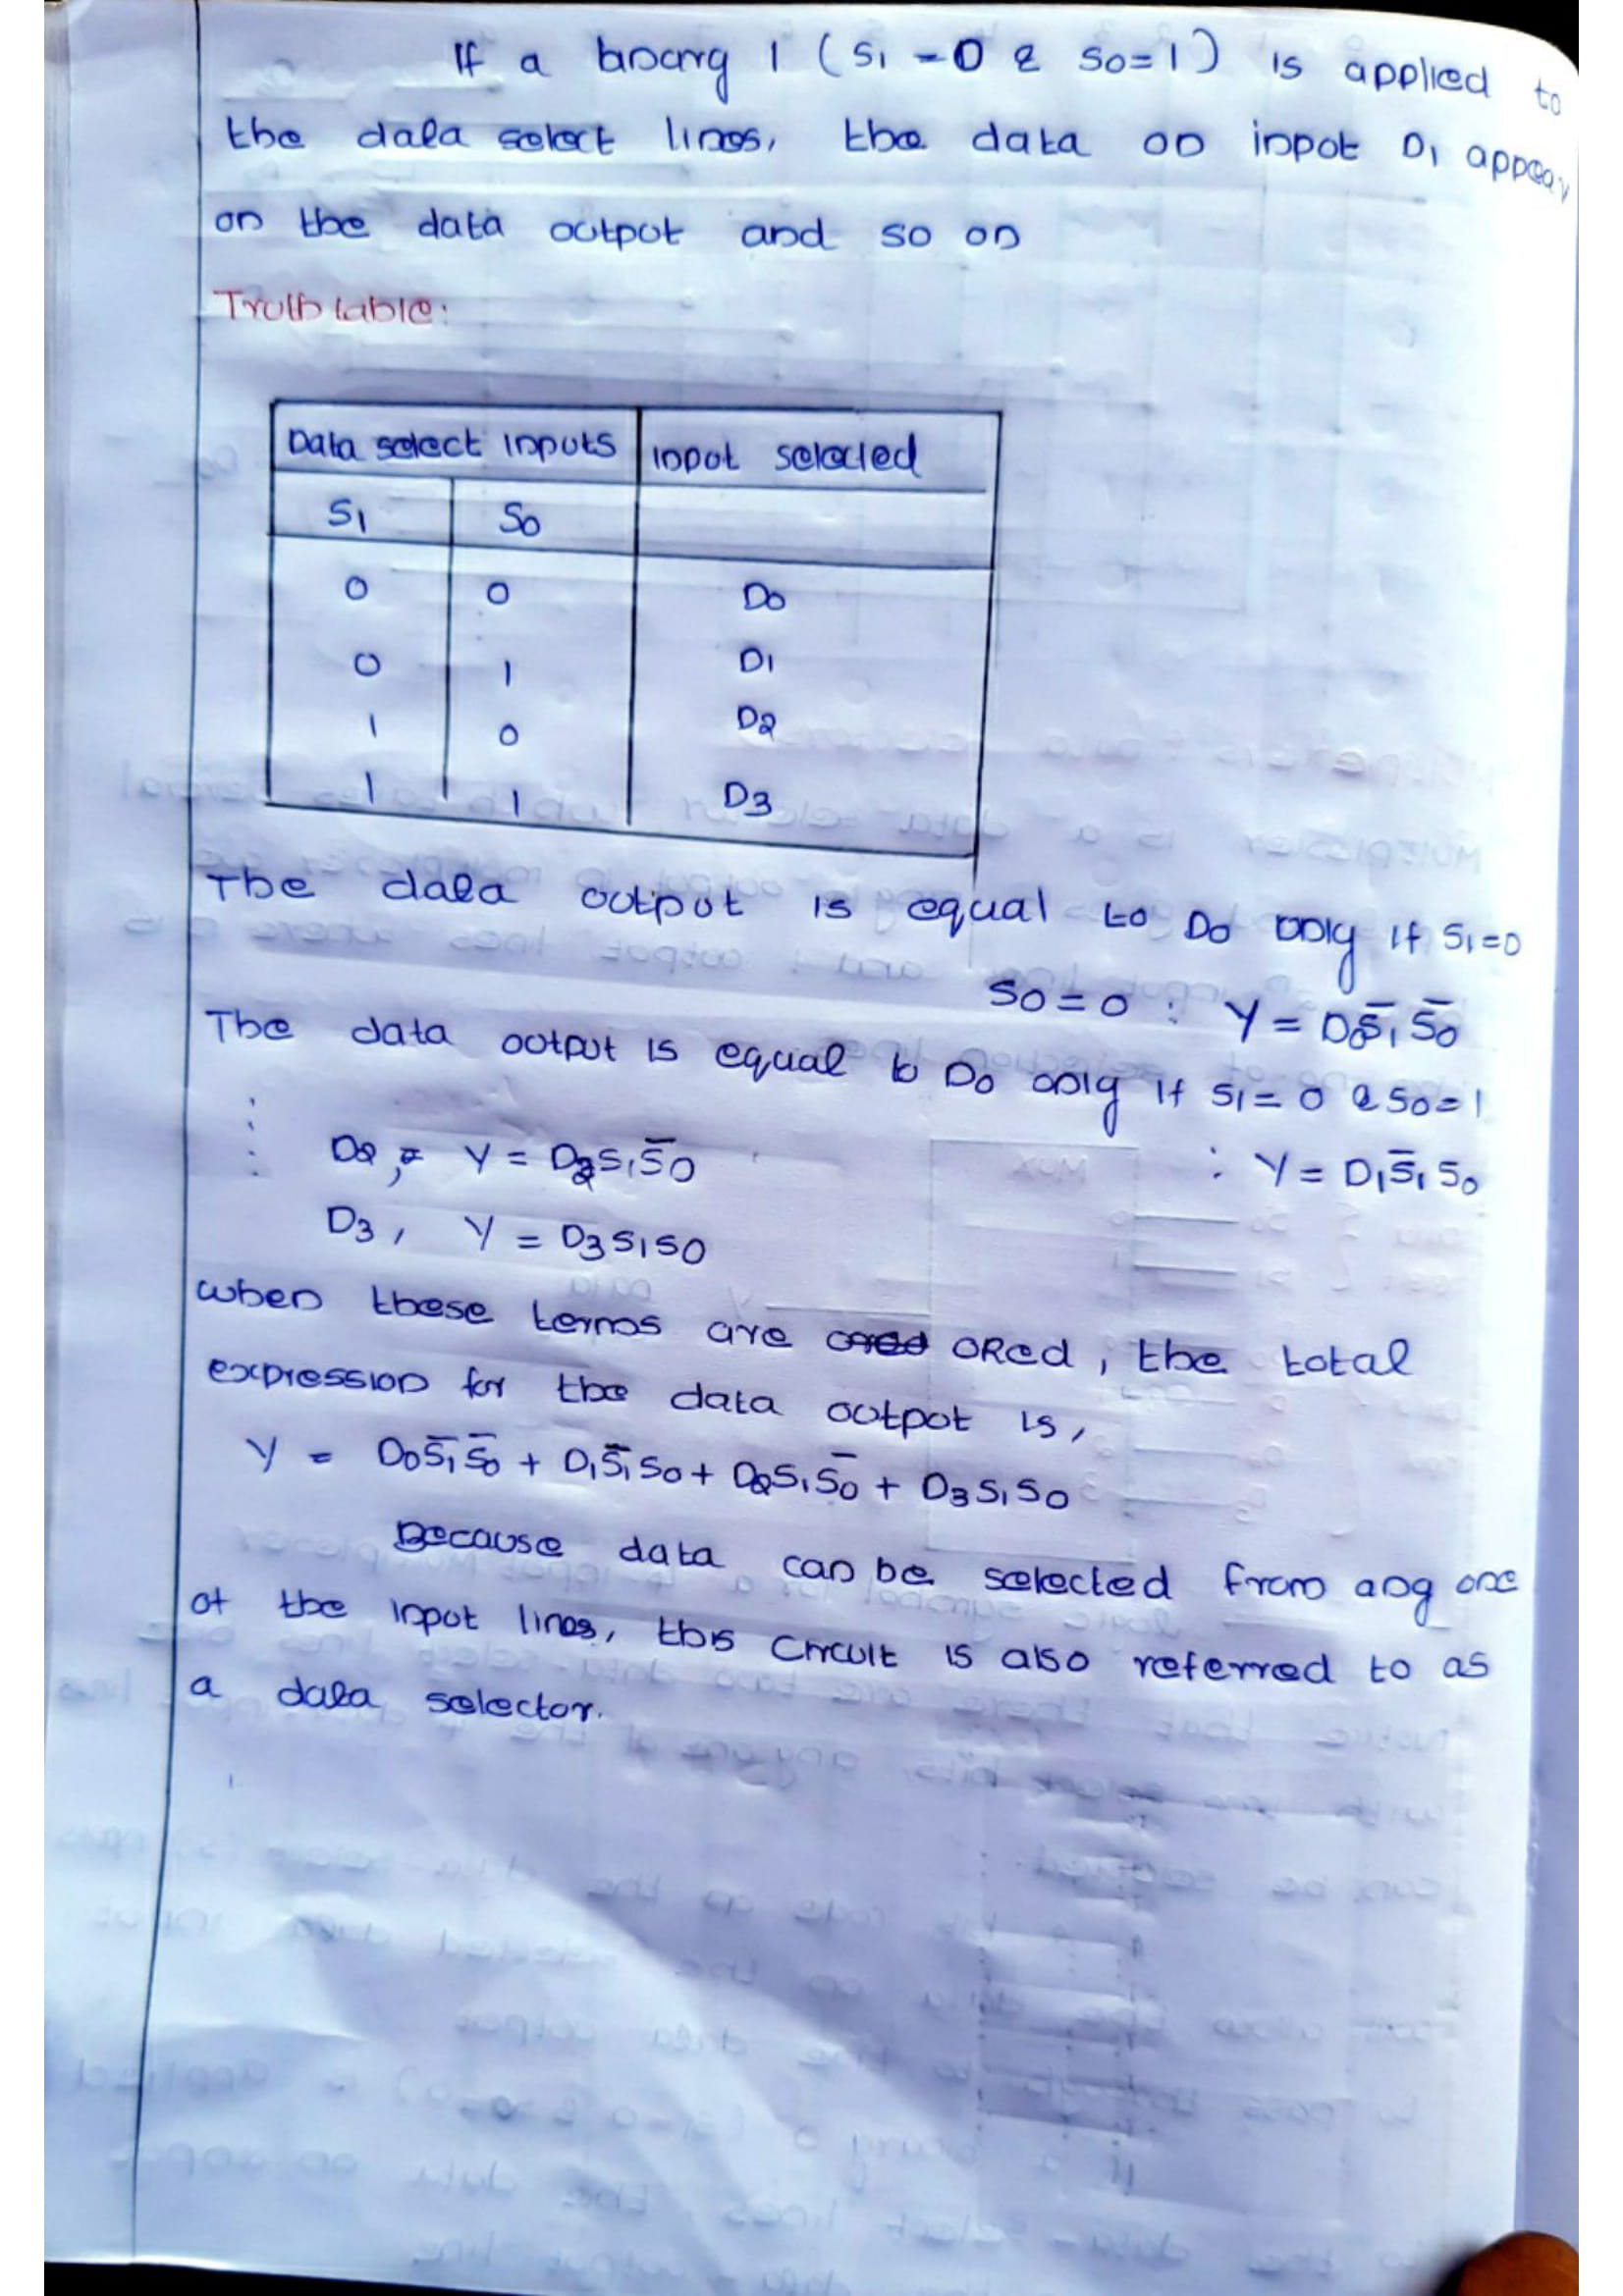 If a binary 1 ( S1 = 0 & S0=1) is applied to
the data select lines, the data on input D1 appear
on the data output and so on
Truth table:
Data select inputs | input selected
S1 S0
0 0 D0
0 1 D1
1 0 D2
1 1 D3
The data output is equal to D0 only if S1=0
S0 = 0 : Y = D0S̅1 S̅0
The data output is equal to D0 only if S1= 0 & S0=1
: Y = D1S̅1 S0
D2, Y = D2S1S̅0
D3, Y = D3S1S0
when these terms are ORed, the total
expression for the data output is,
Y = D0S̅1S̅0 + D1S̅1S0 + D2S1S̅0 + D3S1S0
Because data can be selected from any one
of the input lines, this circuit is also referred to as
a data selector.